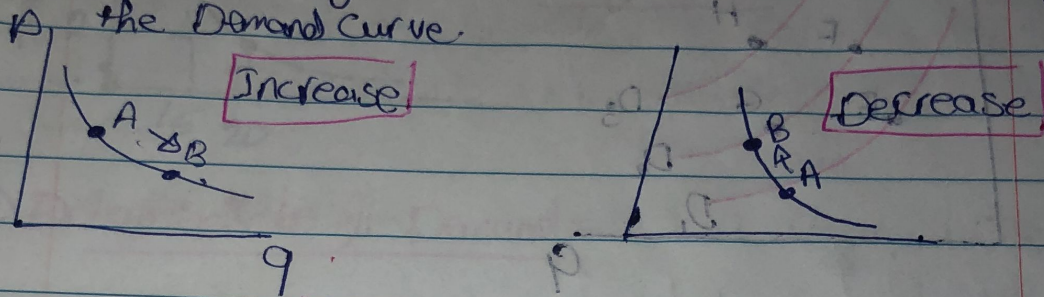 P the Demand Curve.
Increase Decrease
A B B A
q